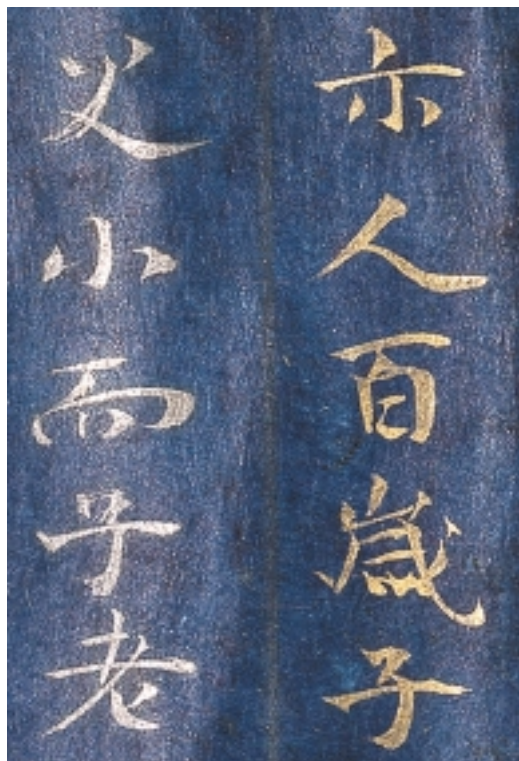 示人百歳子
父小而子老